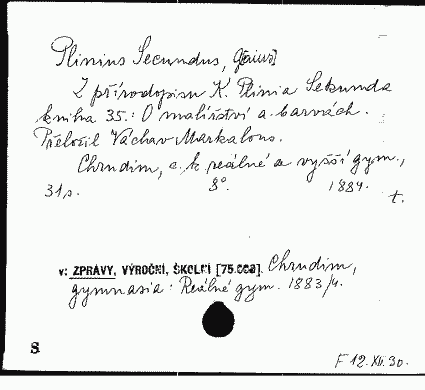 Plinius Secundus, G[aius]
Z přírodopisu K. Plinia Sekunda
kniha 35.: O malířství a barvách.
Přeložil Václav Markalous.
Chrudim, c. k. reálné a vyšší gym.,
31 s. 8°. 1884. t.
v: ZPRÁVY, VÝROČNÍ, ŠKOLNÍ [75.cc2]. Chrudim,
gymnasia: Reálné gym. 1883/4.
S
F 12.XII.30.